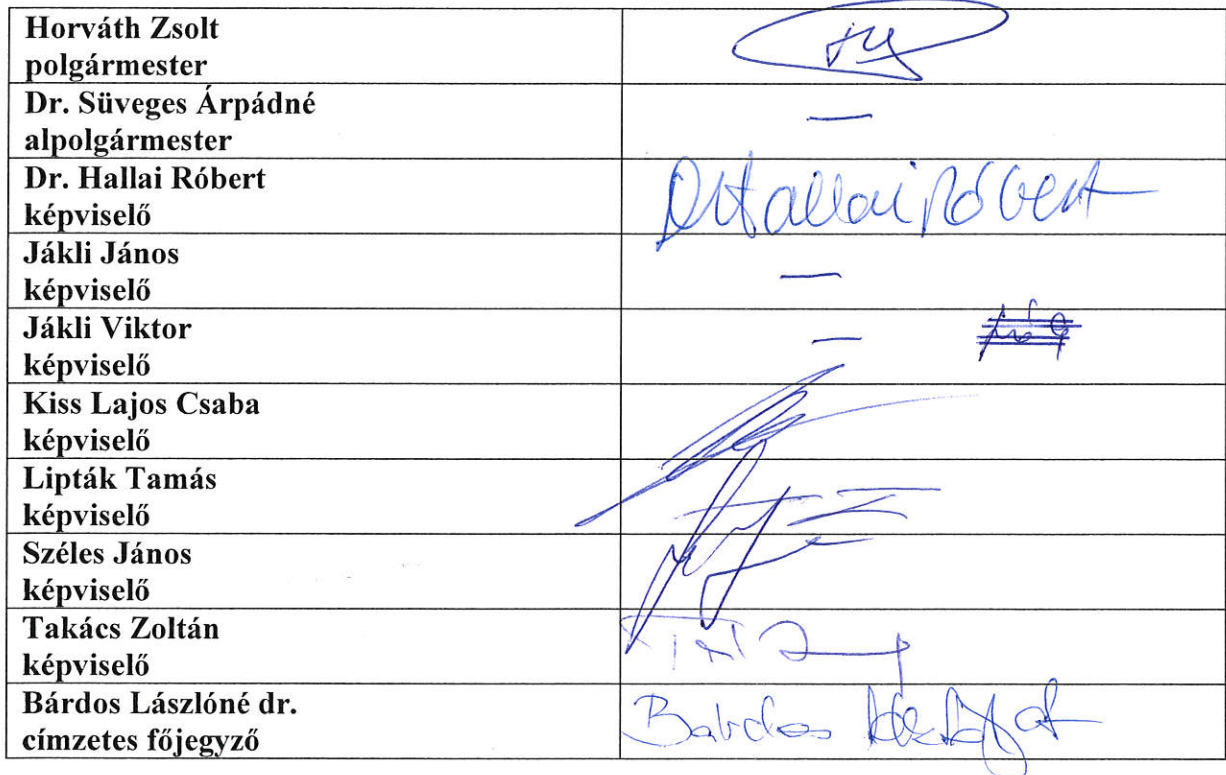 Horváth Zsolt
polgármester
—
Dr. Süveges Árpádné
alpolgármester
Dr. Hallai Róbert
Dr Hallai Róbert
képviselő
Jákli János
—
képviselő
Jákli Viktor
—
képviselő
Kiss Lajos Csaba
képviselő
Lipták Tamás
képviselő
Széles János
képviselő
Takács Zoltán
képviselő
Bárdos Lászlóné dr.
címzetes főjegyző